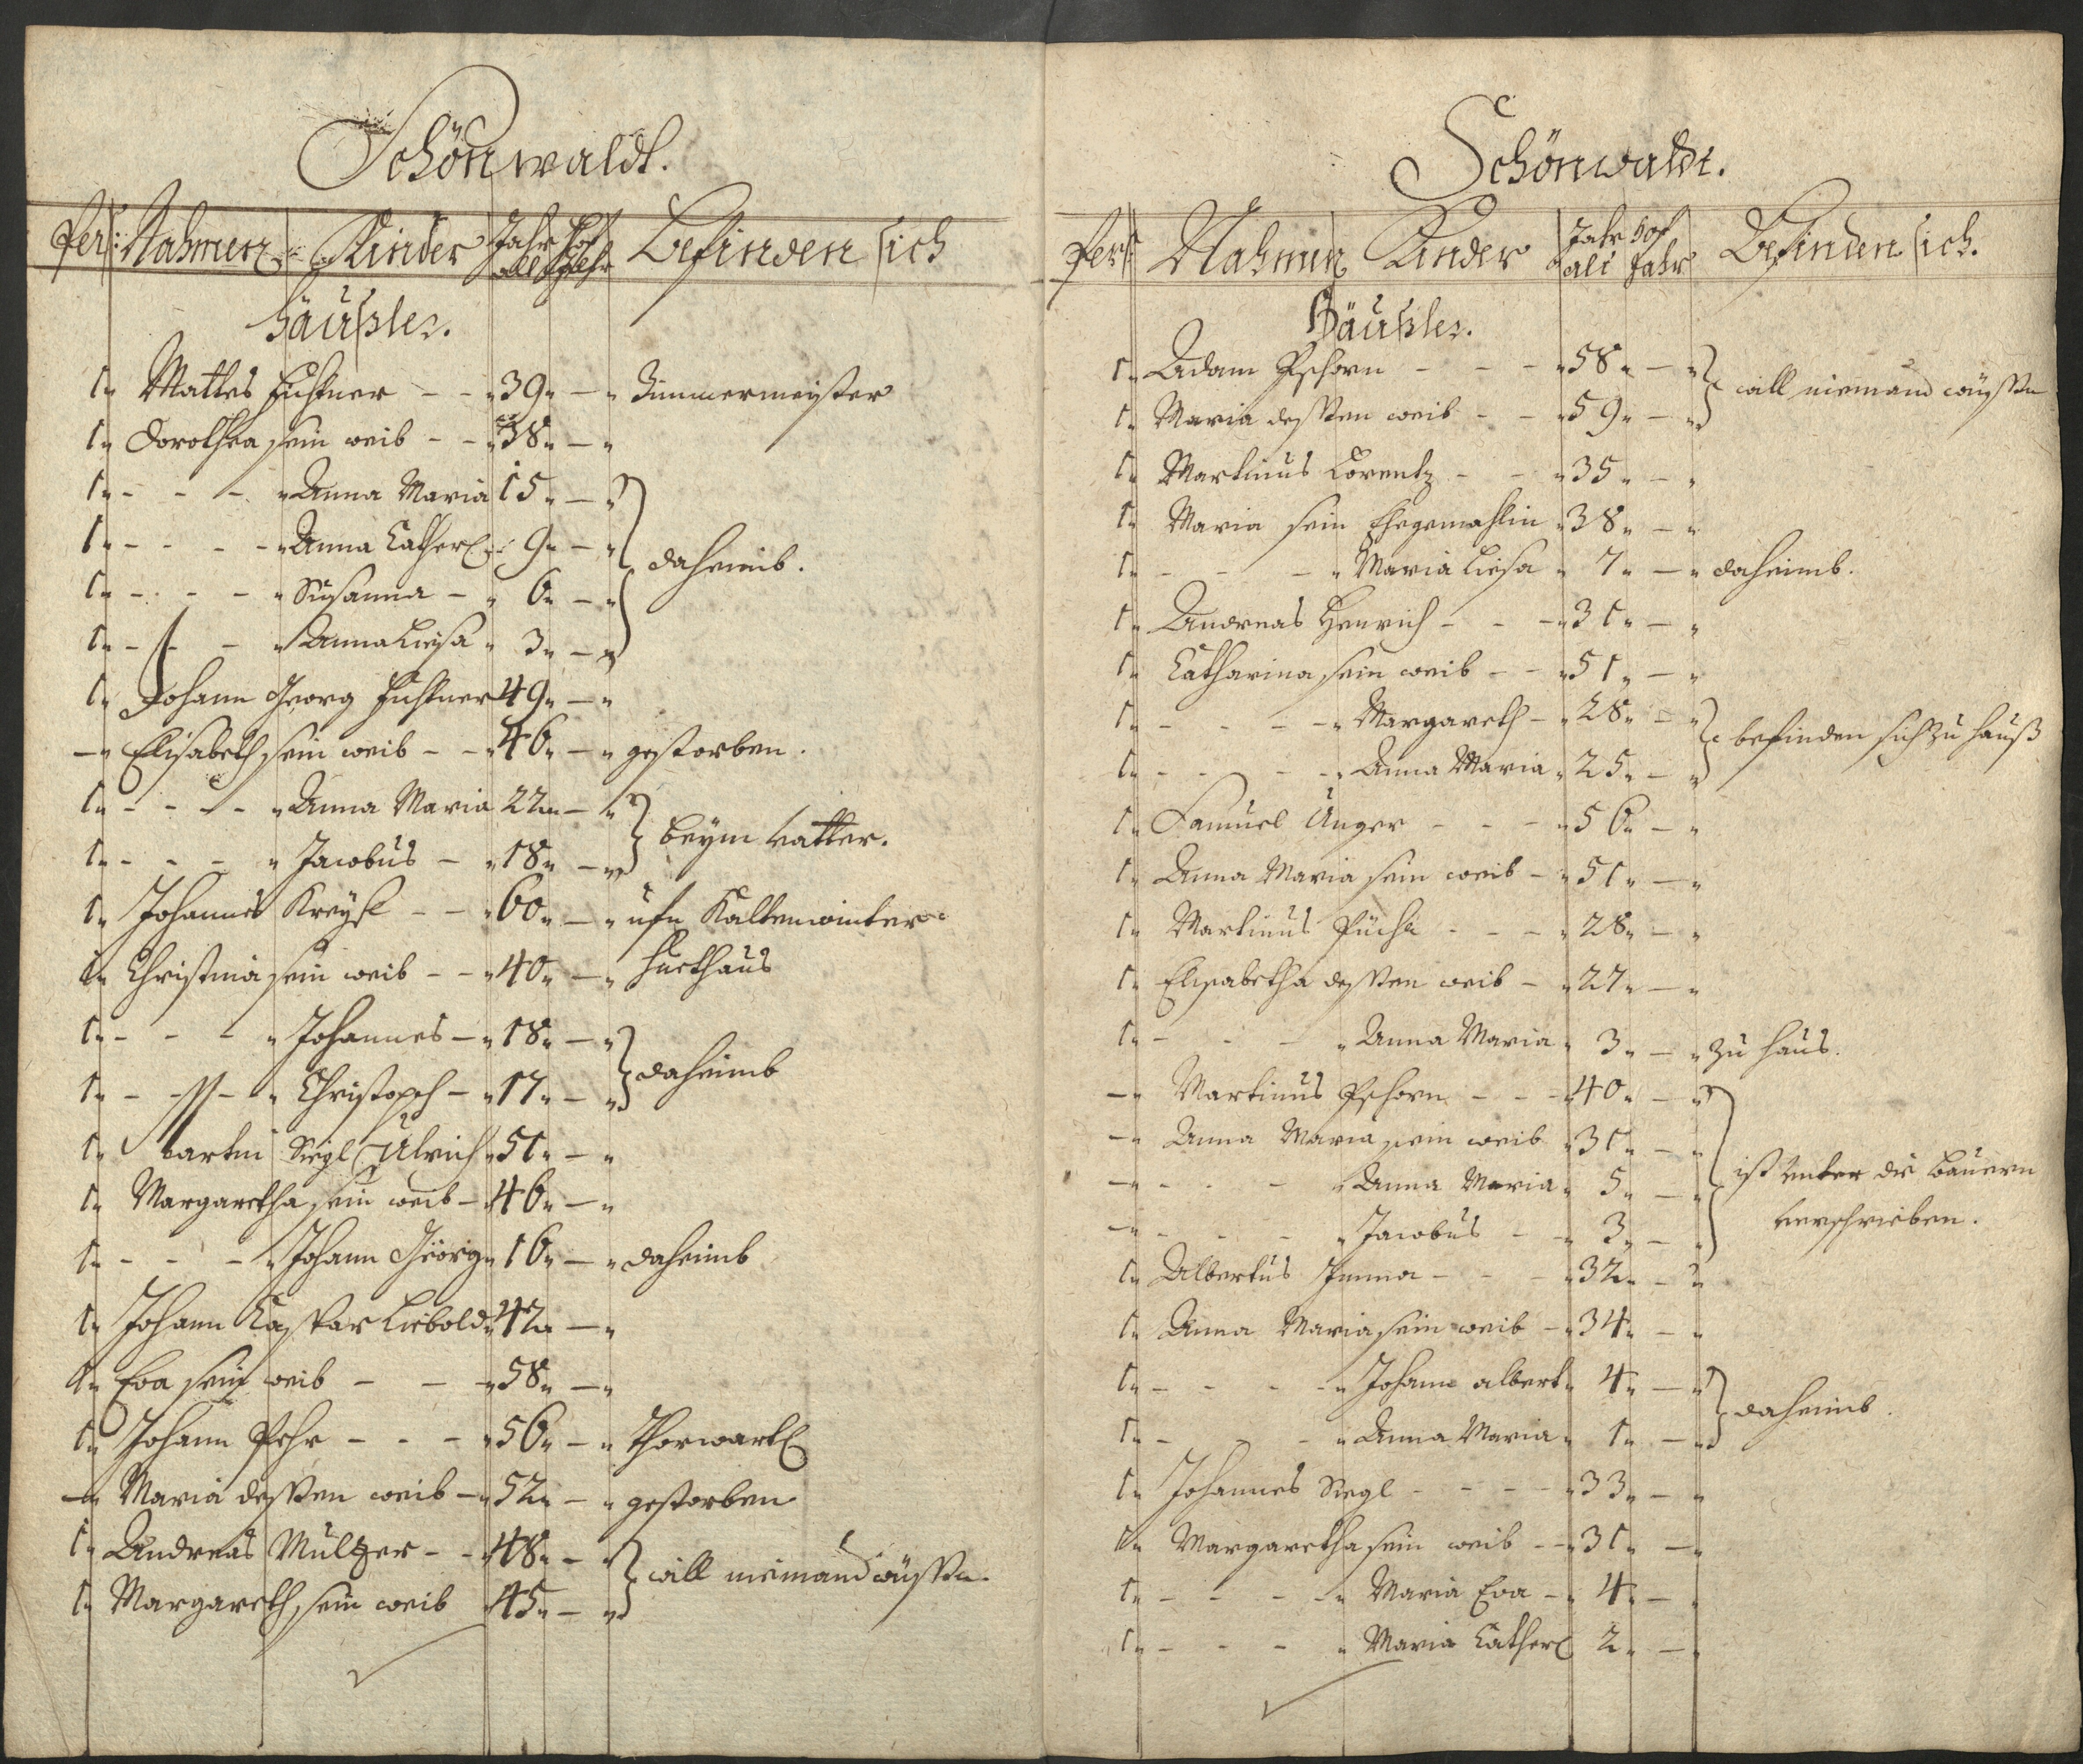 Schönwaldt.
Pers: Nahmen Kinder Jahr alt Hof Jahr Befinden sich
Häußler.
1 Mattes Fuchtner - - 39 - Zimmermeister
1 Dorothea sein weib - - 38 -
1 - - - Anna Maria 15 -
1 - - - Anna Catherl 9 - daheimb.
1 - - - Susanna - 6 -
1 - - - Anna Liesa 3 -
1 Johann Georg Fuchtner 49 -
- Elisabeth sein weib - - 46 - gestorben.
1 - - - Anna Maria 22 - beym vatter.
1 - - - Jacobus - 18 -
1 Johannes Kreysl - - 60 - ufn Kaltenwinter
1 Christina sein weib - - 40 - huethaus
1 - - - Johannes - 18 - daheimb
1 - - - Christoph - 17 -
1 Martin Siegl Ulrich 51 -
1 Margaretha sein weib - 46 -
1 - - - Johann Geörg 16 - daheimb
1 Johann Caspar Liebold 42 -
1 Eva sein weib - - 58 -
1 Johann Pehr - - - 56 - Thorwartl
- Maria dessen weib - 52 - gestorben
1 Andreas Multzer - - 48 - will niemand wüssen.
1 Margareth sein weib 45 -
Schönwaldt.
Pers: Nahmen Kinder Jahr alt Hof Jahr Befinden sich.
Häußler.
1 Adam Pschorn - - - 58 - will niemand wüssen
1 Maria dessen weib - - 59 -
1 Martinus Lorentz - - 35 -
1 Maria sein Ehegemahlin 38 -
1 - - - Maria Liesa 7 - daheimb.
1 Andreas Henrich - - - 31 -
1 Catharina sein weib - - 51 -
1 - - - Margareth - 28 - befinden sich zu hauß
1 - - - Anna Maria 25 -
1 Samuel Unger - - - 56 -
1 Anna Maria sein weib - 51 -
1 Martinus - - - 28 -
1 Elisabetha dessen weib - 22 -
1 - - - Anna Maria 3 - zu haus.
- Martinus Pschorn - - - 40 -
- Anna Maria sein weib 31 -
- - - - Anna Maria 5 - ist unter die bauern
- - - - Jacobus - 3 - verschrieben.
1 Albertus - - - 32 -
1 Anna Maria sein weib - 34 -
1 - - - Johann albert 4 - daheimb.
1 - - - Anna Maria 1 -
1 Johannes Siegl - - - - 33 -
1 Margaretha sein weib - - 31 -
1 - - - Maria Eva - 4 -
1 - - - Maria Catherl 2 -